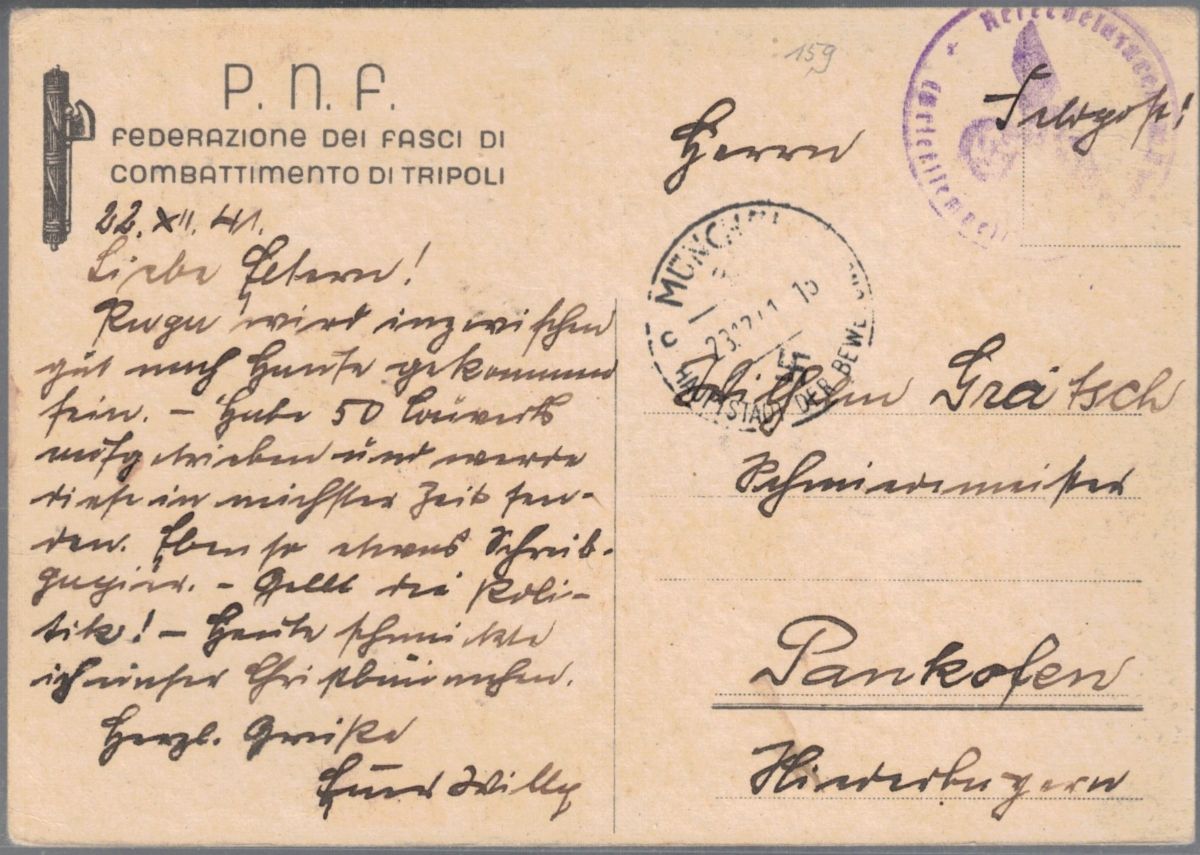 P. N. F.
FEDERAZIONE DEI FASCI DI
COMBATTIMENTO DI TRIPOLI
22. XII. 41.
Liebe Eltern!
wird inzwischen
gut nach Hause gekommen
sein. – Habe 50 Couverts
aufgetrieben und werde
diese in nächster Zeit sen-
den. Ebenso etwas Schreib-
papier. – Gellt die Poli-
tik! – Heute schmückte
ich unser Christbäumchen.
Herzl. Grüße
Euer Willy
159
Feldpost!
Herrn
MÜNCHEN
23.12.41
HAUPTSTADT DER BEWE
Wilhelm Grätsch
Schmiedemeister
Pankofen
Niederbayern